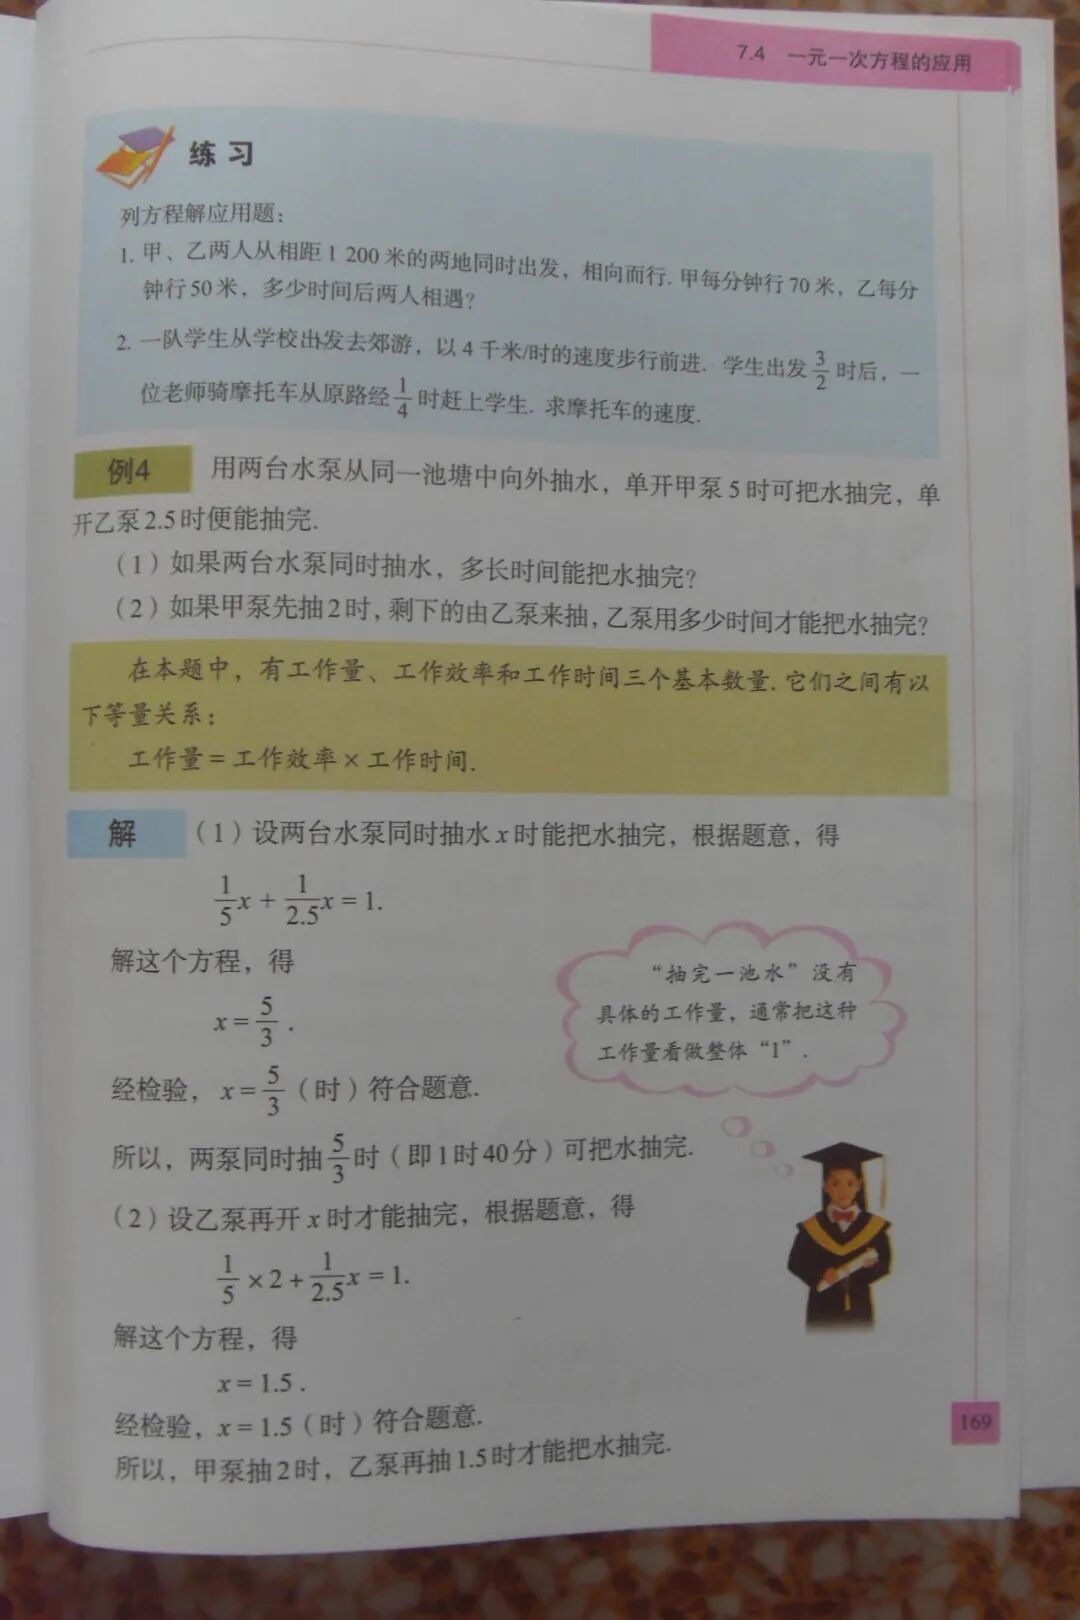 7.4 一元一次方程的应用
练习
列方程解应用题：
1. 甲、乙两人从相距 1 200 米的两地同时出发，相向而行. 甲每分钟行 70 米，乙每分
钟行 50 米，多少时间后两人相遇？
2. 一队学生从学校出发去郊游，以 4 千米/时的速度步行前进. 学生出发 3/2 时后，一
位老师骑摩托车从原路经 1/4 时赶上学生. 求摩托车的速度.
例4 用两台水泵从同一池塘中向外抽水，单开甲泵 5 时可把水抽完，单
开乙泵 2.5 时便能抽完.
（1）如果两台水泵同时抽水，多长时间能把水抽完？
（2）如果甲泵先抽 2 时，剩下的由乙泵来抽，乙泵用多少时间才能把水抽完？
在本题中，有工作量、工作效率和工作时间三个基本数量. 它们之间有以
下等量关系：
工作量 = 工作效率 × 工作时间.
解 （1）设两台水泵同时抽水 x 时能把水抽完，根据题意，得
1/5 x + 1/2.5 x = 1.
解这个方程，得
x = 5/3 .
经检验，x = 5/3（时）符合题意.
所以，两泵同时抽 5/3 时（即 1 时 40 分）可把水抽完.
“抽完一池水”没有
具体的工作量，通常把这种
工作量看做整体“1”.
（2）设乙泵再开 x 时才能抽完，根据题意，得
1/5 × 2 + 1/2.5 x = 1.
解这个方程，得
x = 1.5 .
经检验，x = 1.5（时）符合题意.
所以，甲泵抽 2 时，乙泵再抽 1.5 时才能把水抽完.
169